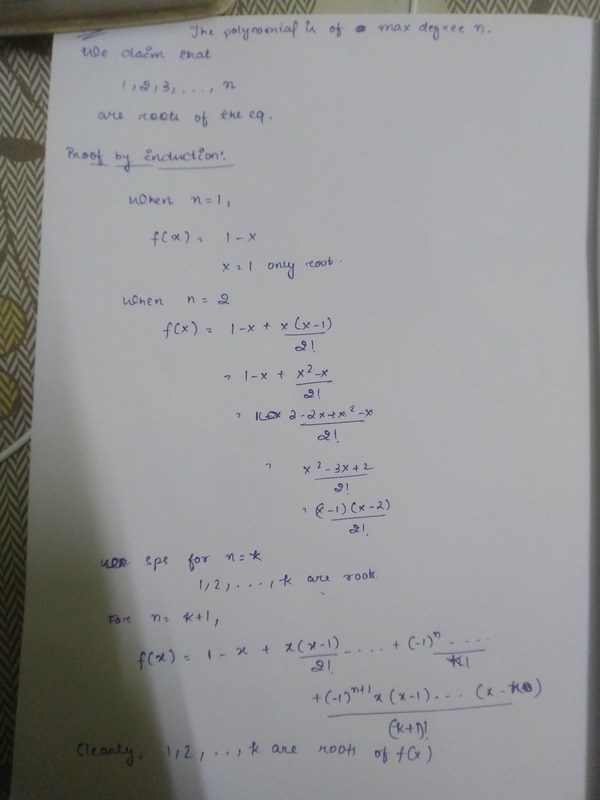 The polynomial is of max degree n.
We claim that
1, 2, 3, ..., n
are roots of the eq.
Proof by induction:
When n=1,
f(x) = 1-x
x=1 only root.
When n=2
f(x) = 1-x + x(x-1)/2!
= 1-x + x²-x/2!
= 2-2x+x²-x/2!
= x²-3x+2/2!
= (x-1)(x-2)/2!
sps for n=k
1, 2, ..., k are root.
For n=k+1,
f(x) = 1-x + x(x-1)/2! ..... + (-1)ⁿ ...../k!
+(-1)ⁿ⁺¹ x(x-1)...(x-k)/(k+1)!
Clearly, 1, 2, .., k are roots of f(x)